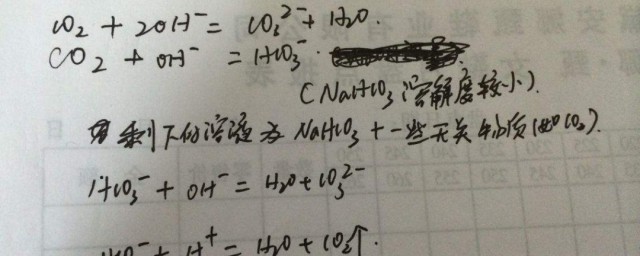 CO₂ + 2OH⁻ = CO₃²⁻ + H₂O.
CO₂ + OH⁻ = HCO₃⁻.
(NaHCO₃溶解度较小).
剩下的溶液为 NaHCO₃ + 一些无关物质(如CO₂).
HCO₃⁻ + OH⁻ = H₂O + CO₃²⁻
HCO₃⁻ + H⁺ = H₂O + CO₂↑.